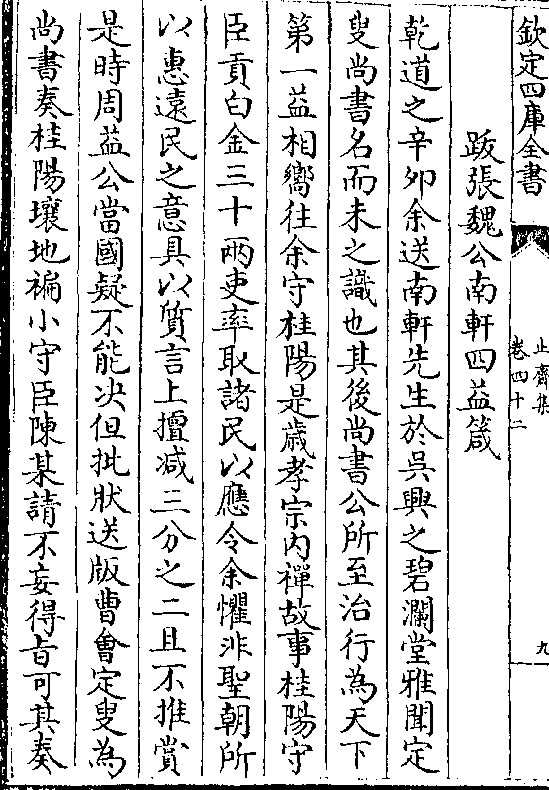 欽定四庫全書
止齋集
卷四十二
九
跋張魏公南軒四益箴
乾道之辛夘余送南軒先生於吳興之碧瀾堂雅聞定
叟尚書名而未之識也其後尚書公所至治行為天下
第一益相嚮往余守桂陽是歲孝宗内禪故事桂陽守
臣貢白金三十兩吏率取諸民以應令余懼非聖朝所
以惠遠民之意具以質言上擅减三分之二且不推賞
是時周益公當國疑不能决但批狀送版曹會定叟為
尚書奏桂陽壤地褊小守臣陳某請不妄得旨可其奏